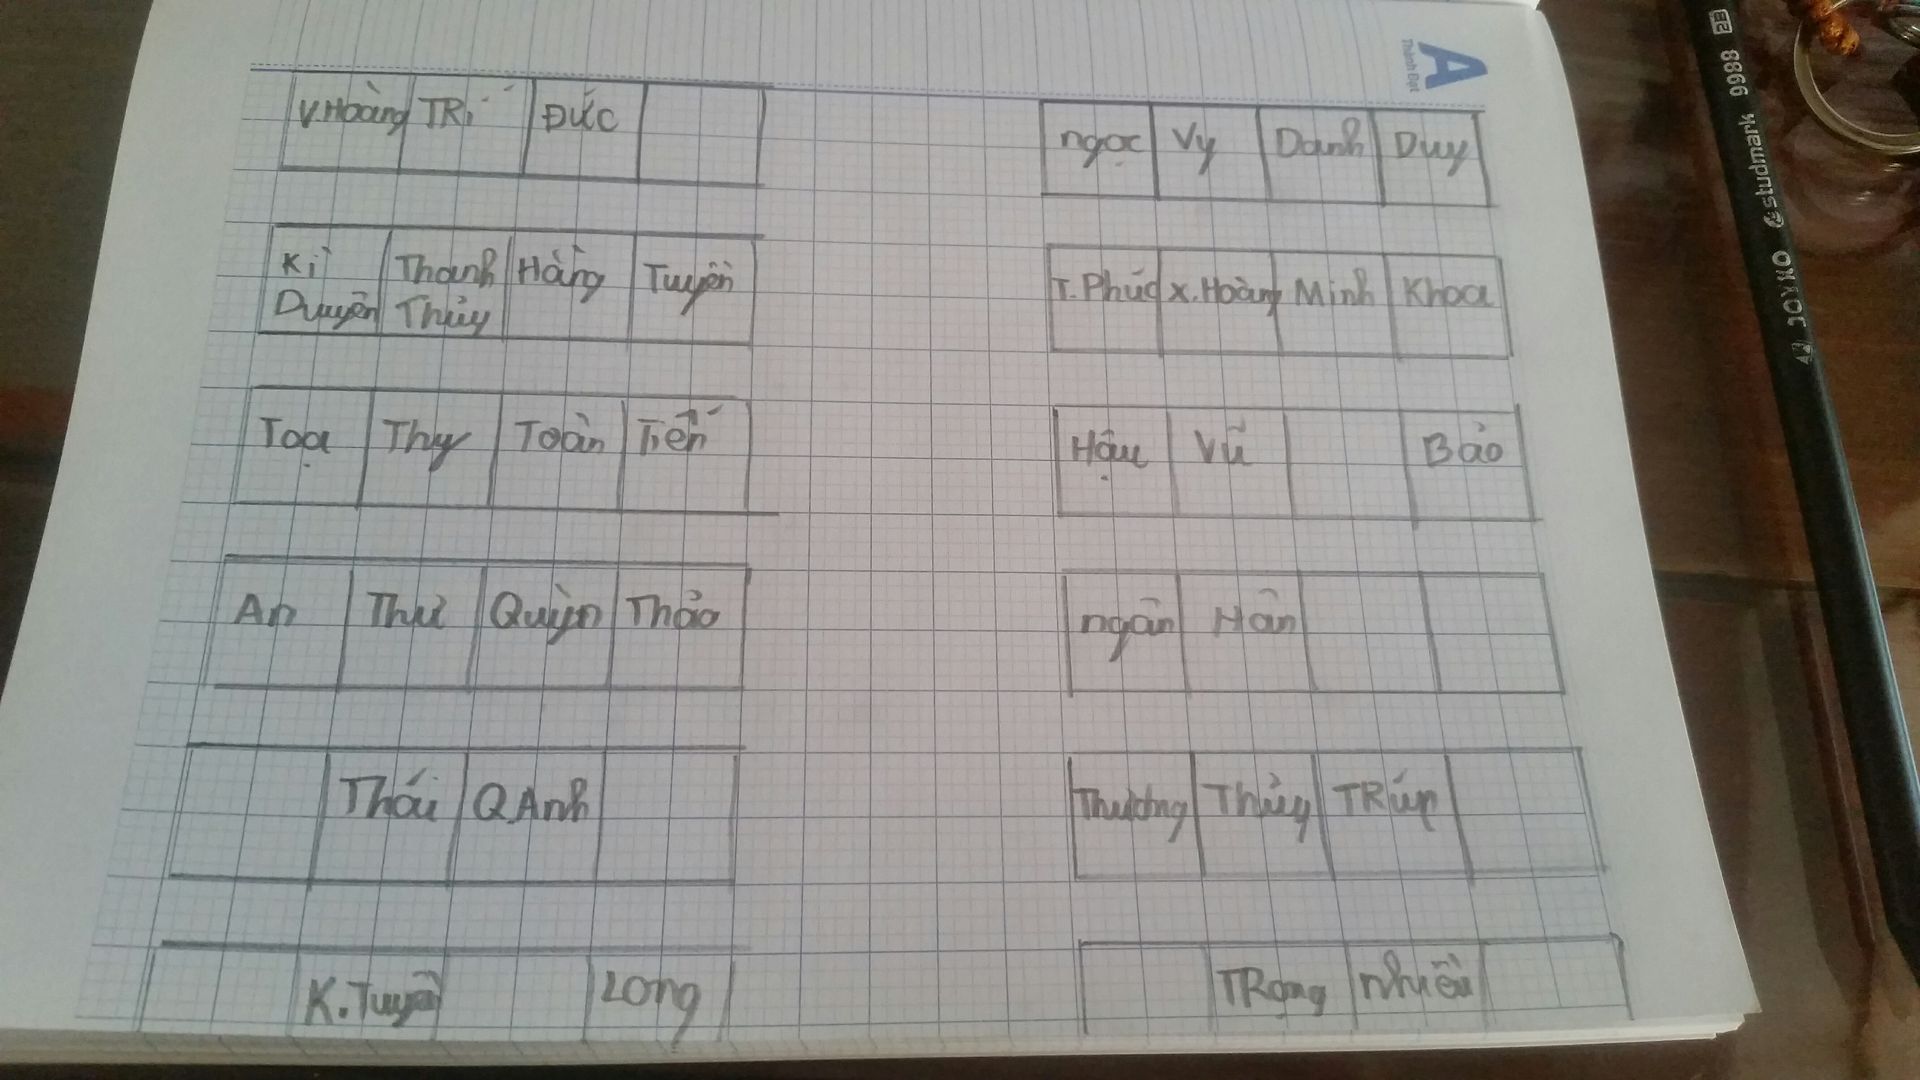 A
Thành Đạt
V.Hoàng TRí Đức
ngọc Vy Danh Duy
Kì Duyên Thanh Thủy Hằng Tuyền
T.Phúc X.Hoàng Minh Khoa
Tọa Thy Toàn Tiến
Hậu Vũ Bảo
An Thư Quỳn Thảo
ngân Hân
Thái QAnh
Thương Thủy TRúp
K.Tuyền Long
TRọng nhiều
JOYKO studmark 9988 2B